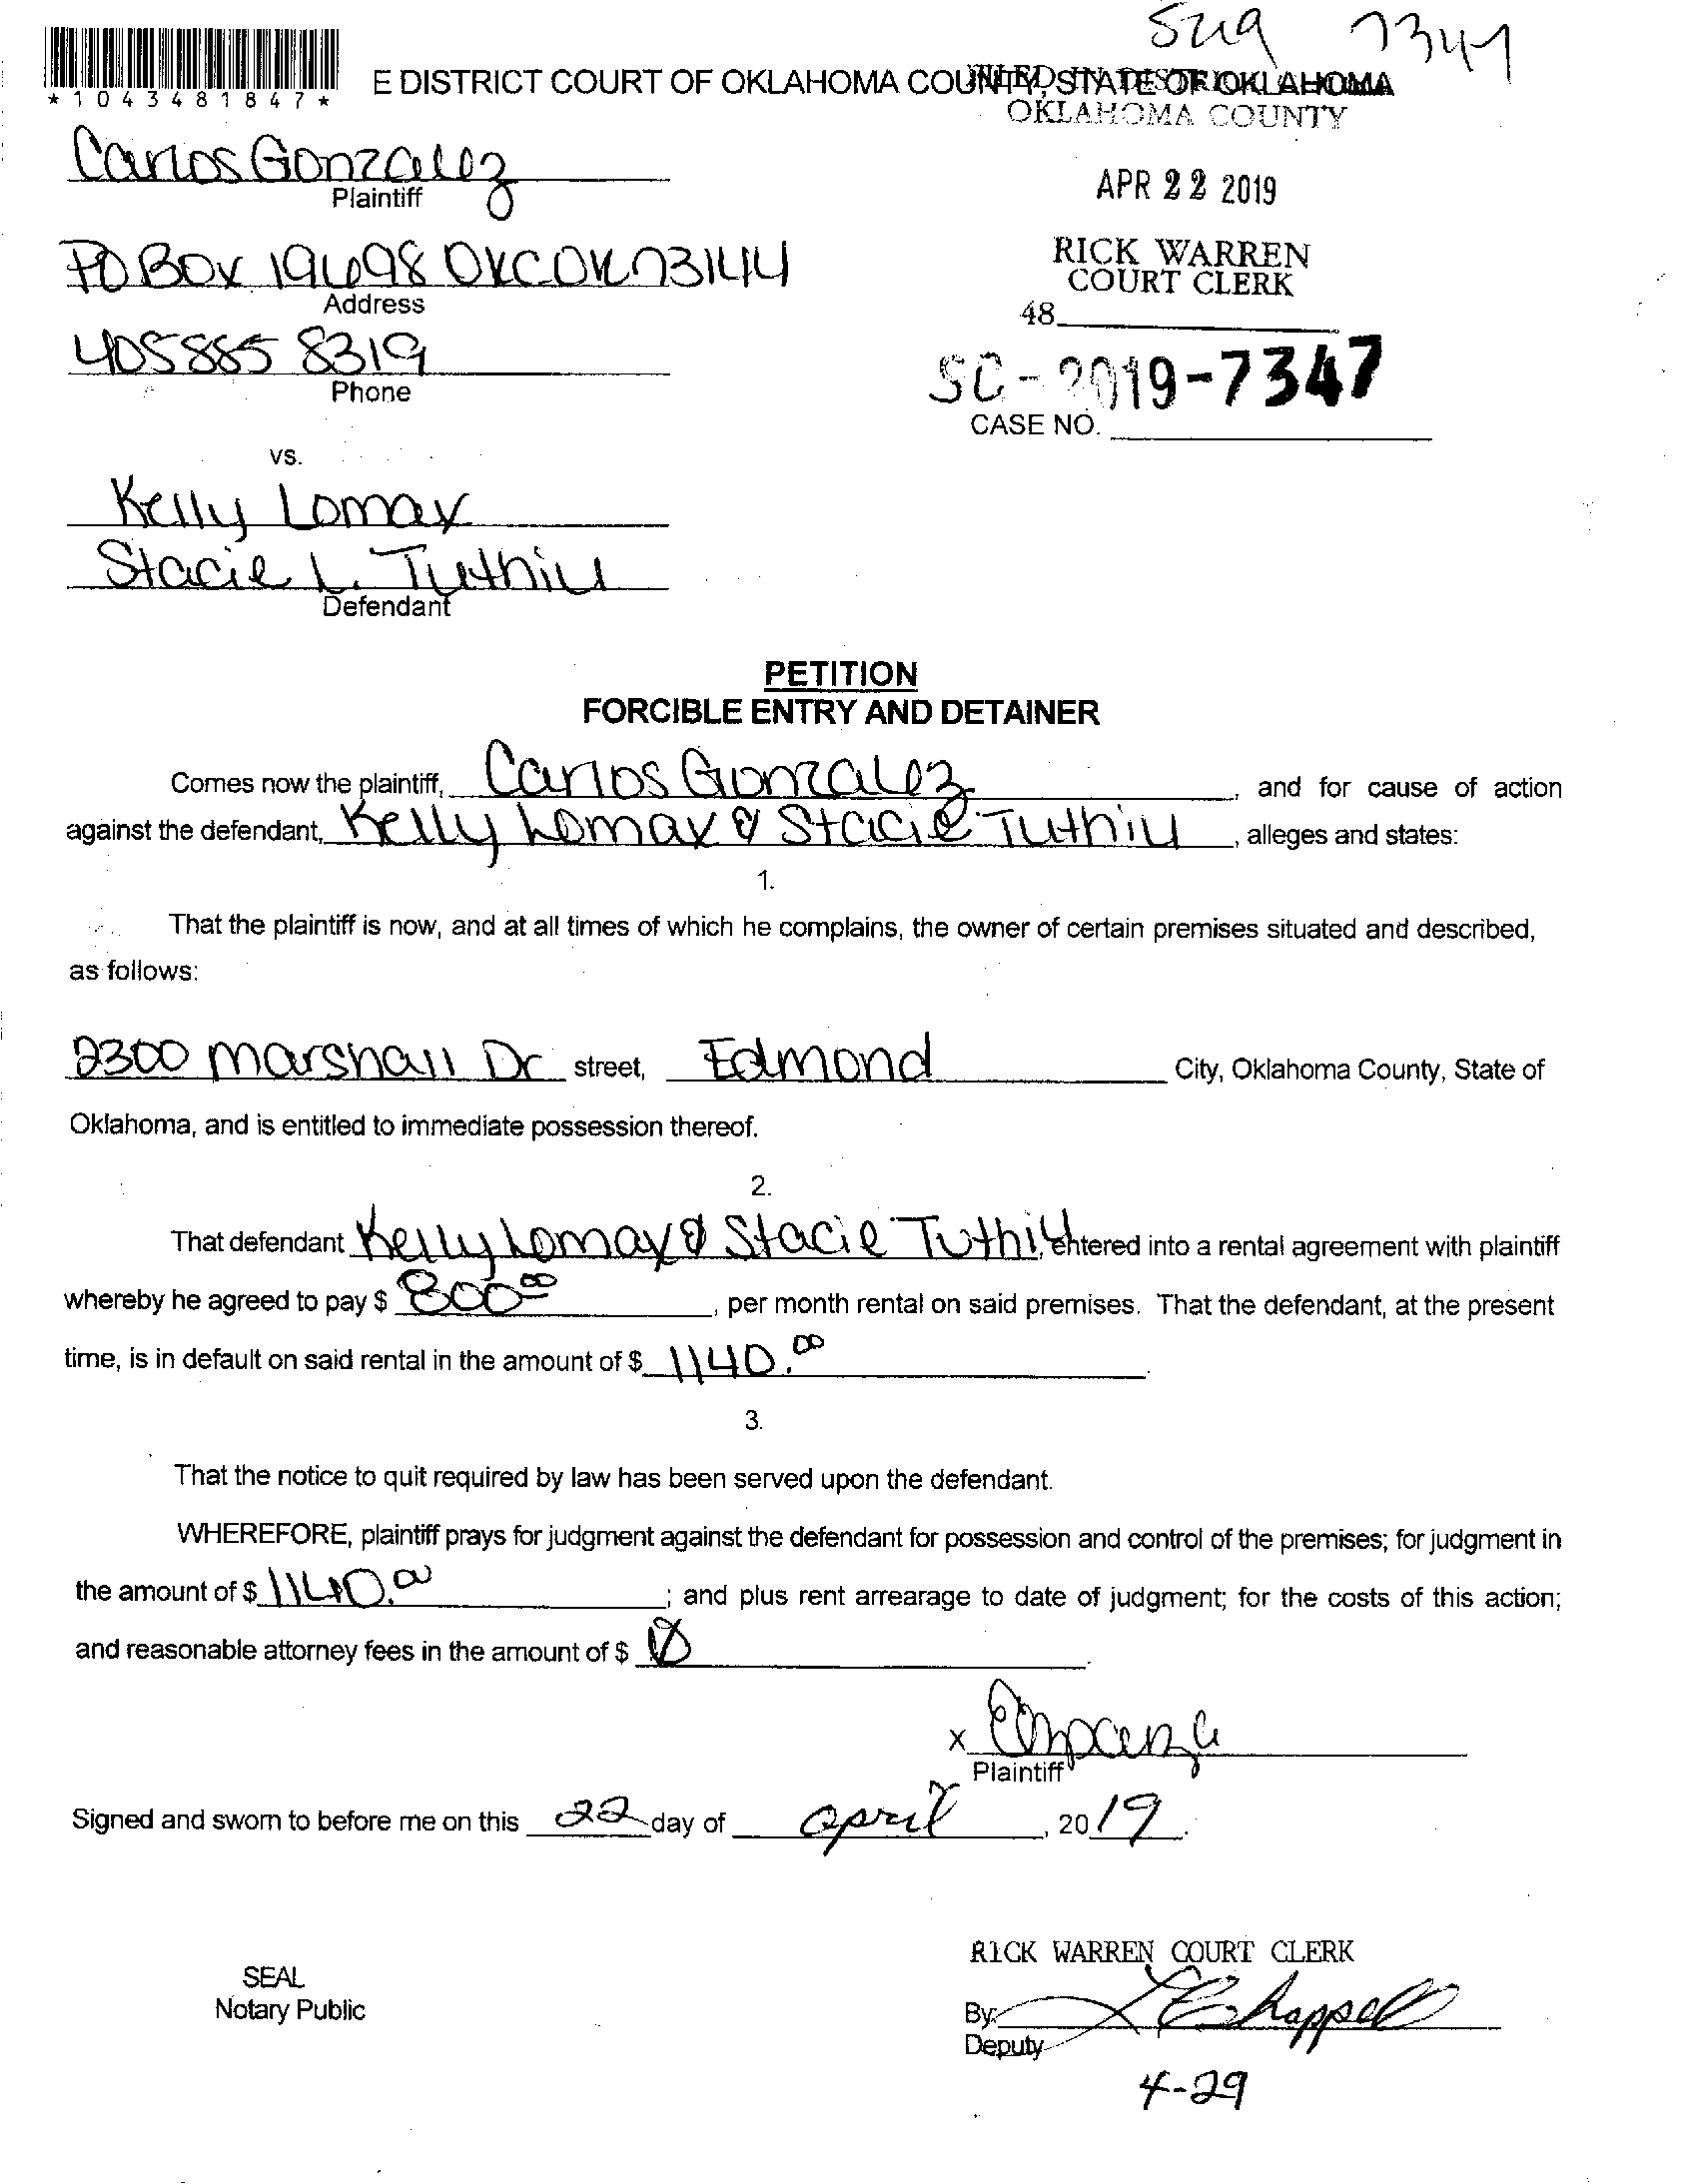 7347
*1043481847*
E DISTRICT COURT OF OKLAHOMA COUNTY, STATE OF OKLAHOMA
OKLAHOMA COUNTY
Carlos Gonzalez
Plaintiff
APR 22 2019
PO BOX 19698 OKC OK 73144
Address
RICK WARREN
COURT CLERK
48
405 885 8319
Phone
SC-2019-7347
CASE NO.
vs.
Kelly Lomax
Stacie L. Tuthill
Defendant
PETITION
FORCIBLE ENTRY AND DETAINER
Comes now the plaintiff, Carlos Gonzalez, and for cause of action
against the defendant, Kelly Lomax & Stacie Tuthill, alleges and states:
1.
That the plaintiff is now, and at all times of which he complains, the owner of certain premises situated and described,
as follows:
2300 Marshall Dr street, Edmond City, Oklahoma County, State of
Oklahoma, and is entitled to immediate possession thereof.
2.
That defendant Kelly Lomax & Stacie Tuthill, entered into a rental agreement with plaintiff
whereby he agreed to pay $ 800.00, per month rental on said premises. That the defendant, at the present
time, is in default on said rental in the amount of $ 1140.00.
3.
That the notice to quit required by law has been served upon the defendant.
WHEREFORE, plaintiff prays for judgment against the defendant for possession and control of the premises; for judgment in
the amount of $ 1140.00; and plus rent arrearage to date of judgment; for the costs of this action;
and reasonable attorney fees in the amount of $ Ø.
x
Plaintiff
Signed and sworn to before me on this 22 day of April, 2019.
RICK WARREN COURT CLERK
SEAL
Notary Public
By: Chappell
Deputy
4-29